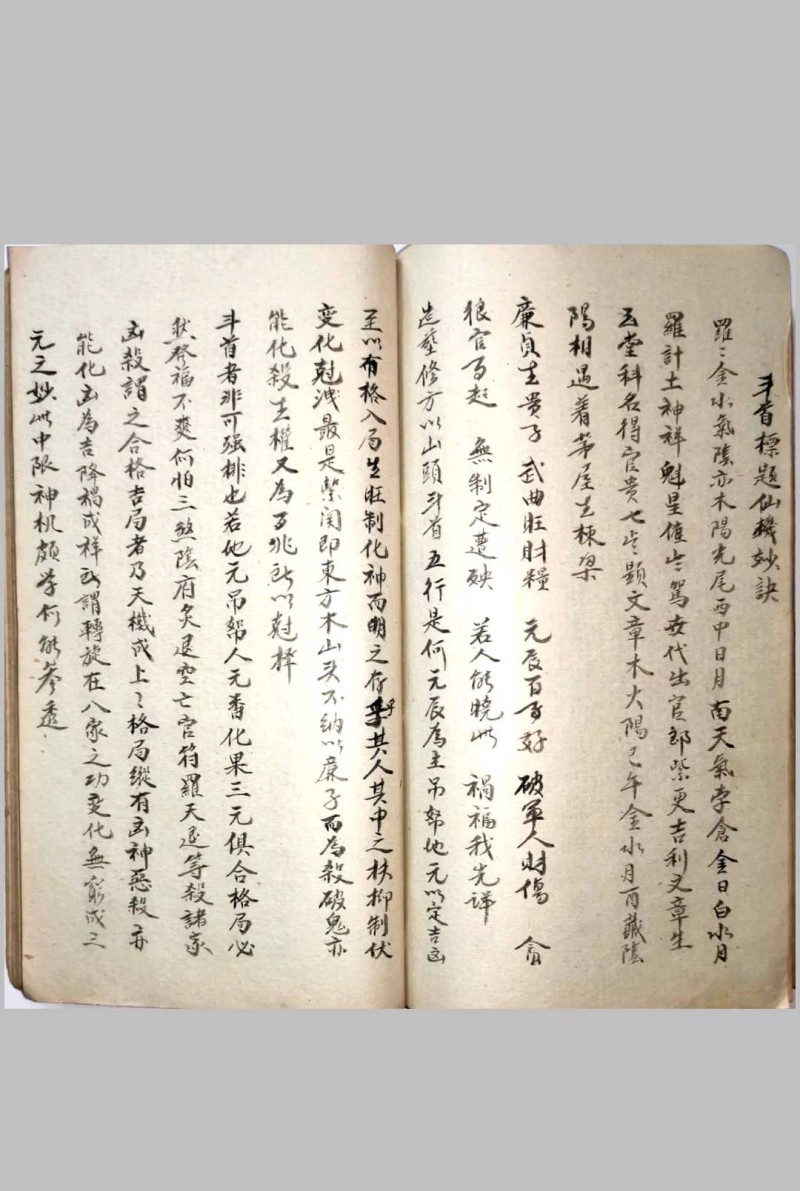 斗首標題仙機妙訣
羅〻金水氣陰亦木陽光尾西中日月南天氣孛倉金日白水月
羅計土神祥魁星值此駕世代出官郎紫更吉利文章生
玉堂科名得官貴七此顕文章木火陽己午金水月酉藏陰
陽相遇着茅屋生棟梁
廉貞生貴子武曲旺財糧 元辰百事好 破軍人財傷 貪
狼官司起 無制定遭殃 若人能曉此 禍福我先詳
造塟修方以山頭斗首五行是何元辰為主吊幣地元以定吉凶
至以有格入局生旺制化神而明之存乎其人其中之扶抑制伏
变化尅洩最是緊関即東方木山头不納以廉子而為殺破鬼亦
能化殺生權又為百兆所以尅擇
斗首者非可强排也若地元吊幣人元畨化果三元俱合格局必
然發福不爽何怕三煞陰府炙退空亡官符羅天退等殺諸家
凶殺謂之合格吉局者乃天機成上〻格局縱有凶神惡殺亦
能化凶為吉降禍成祥所謂轉旋在八家之功变化無窮成三
元之妙此中限神机頗學何能參透